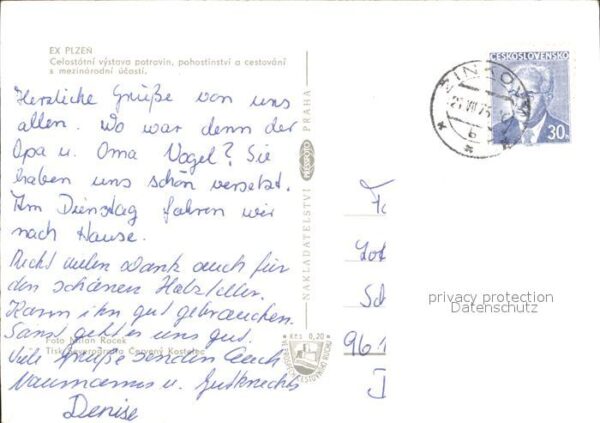 EX PLZEŇ
Celostátní výstava potravin, pohostinství a cestování
s mezinárodní účastí.
Herzliche Grüße von uns
allen. Wo war denn der
Opa u. Oma Vogel? Sie
haben uns schön versetzt.
Am Dienstag fahren wir
nach Hause.
Recht vielen Dank auch für
den schönen Holzteller.
Kann ihn gut gebrauchen.
Sonst geht es uns gut.
Foto Milan Raček
Tisk Severografia Červený Kostelec
Viele Grüße senden Euch
Naumanns u. Gutknechts
Denise
NAKLADATELSTVÍ PRAHA
Kčs 0,20
ČESKOSLOVENSKO
30
961
privacy protection
Datenschutz